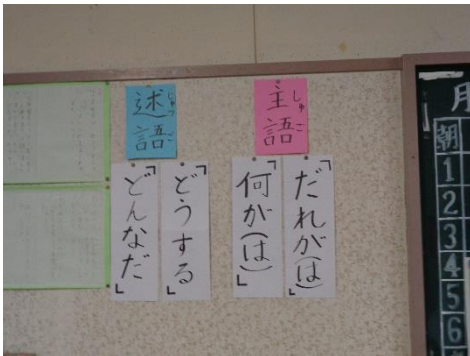 主語
しゅご
「だれが(は)
何が(は)」
述語
じゅつご
「どうする
どんなだ」
月
朝
1
2
3
4
5
6